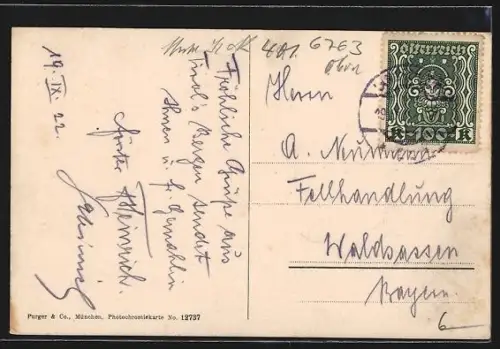 401 6763
oben
Österreich
K 100 K
19. IX. 22.
Fröhliche Grüße aus
Tirol's Bergen sendet
Ihnen u. fr. Gemahlin
Heinrich.
Herrn
A. Neumann
Fellhandlung
Waldsassen
Bayern.
6
Purger & Co., München, Photochromiekarte No. 12737